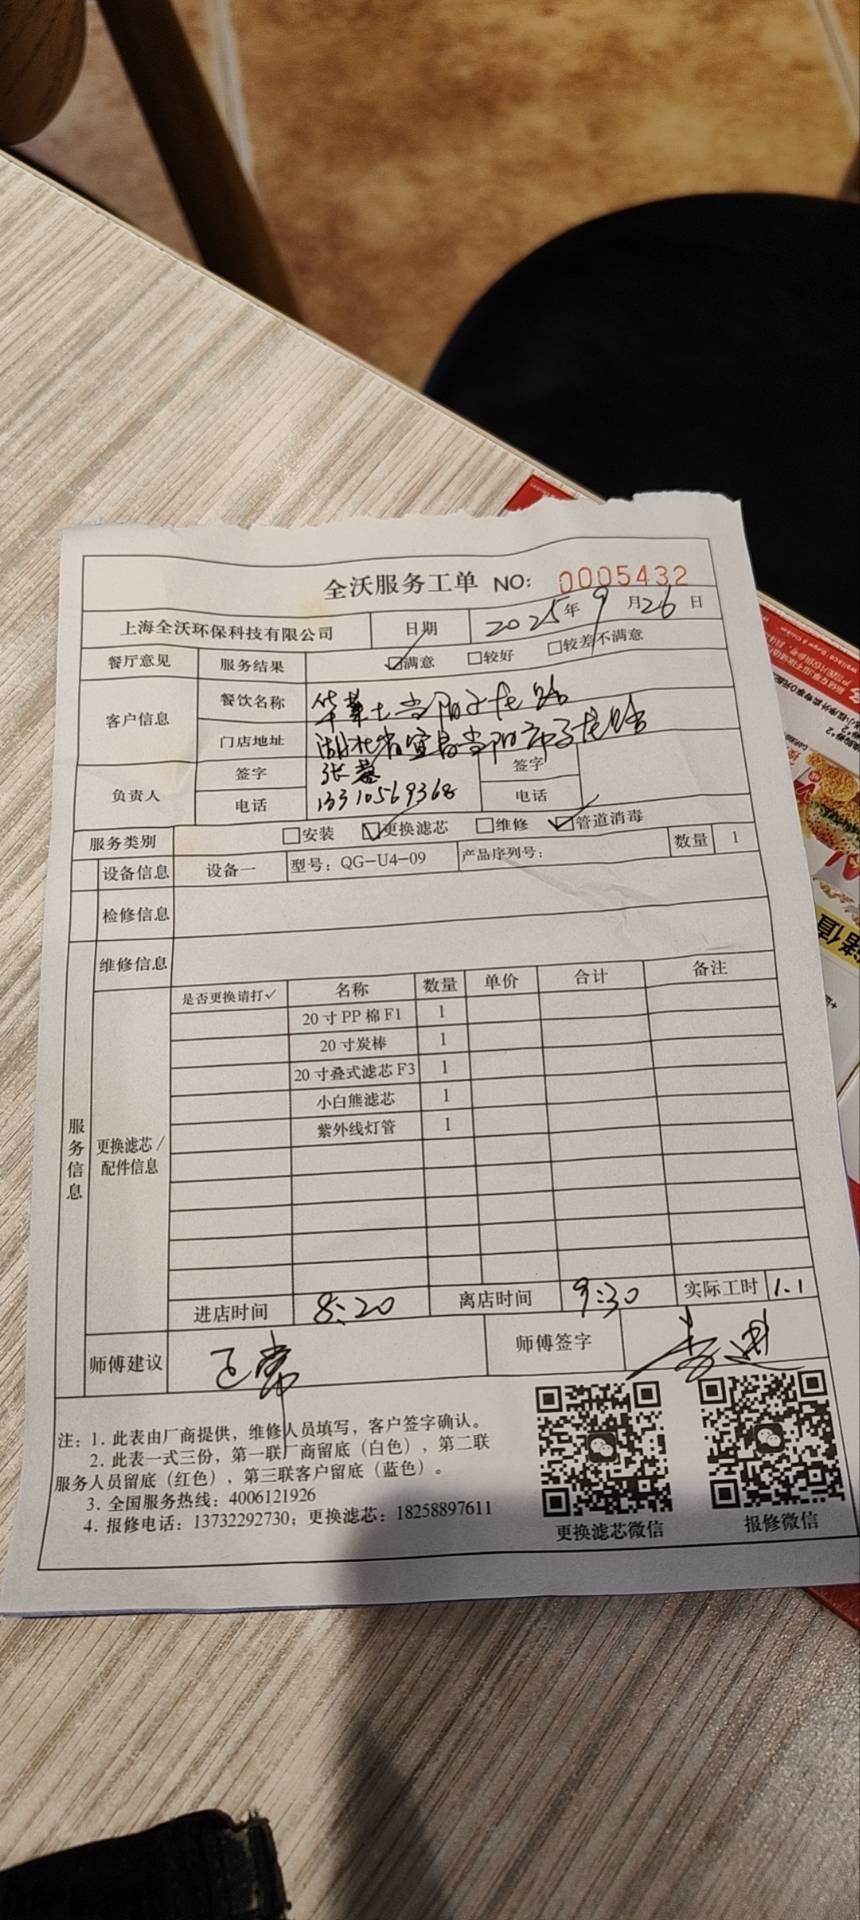 全沃服务工单 NO: 0005432
上海全沃环保科技有限公司 日期 2025年9月26日
餐厅意见 服务结果 ☑满意 □较好 □较差不满意
客户信息 餐饮名称 华莱士当阳子龙路
门店地址 湖北省宜昌当阳市子龙路
负责人 签字 张蓉 签字
电话 13310569368 电话
服务类别 □安装 ☑更换滤芯 □维修 ☑管道消毒
设备信息 设备一 型号：QG-U4-09 产品序列号： 数量 1
检修信息
维修信息
服务信息
更换滤芯/
配件信息
是否更换请打✓ 名称 数量 单价 合计 备注
20寸PP棉F1 1
20寸炭棒 1
20寸叠式滤芯F3 1
小白熊滤芯 1
紫外线灯管 1
进店时间 8:20 离店时间 9:30 实际工时 1.1
师傅建议 正常 师傅签字
注：1. 此表由厂商提供，维修人员填写，客户签字确认。
2. 此表一式三份，第一联厂商留底（白色），第二联
服务人员留底（红色），第三联客户留底（蓝色）。
3. 全国服务热线：4006121926
4. 报修电话：13732292730；更换滤芯：18258897611
更换滤芯微信 报修微信